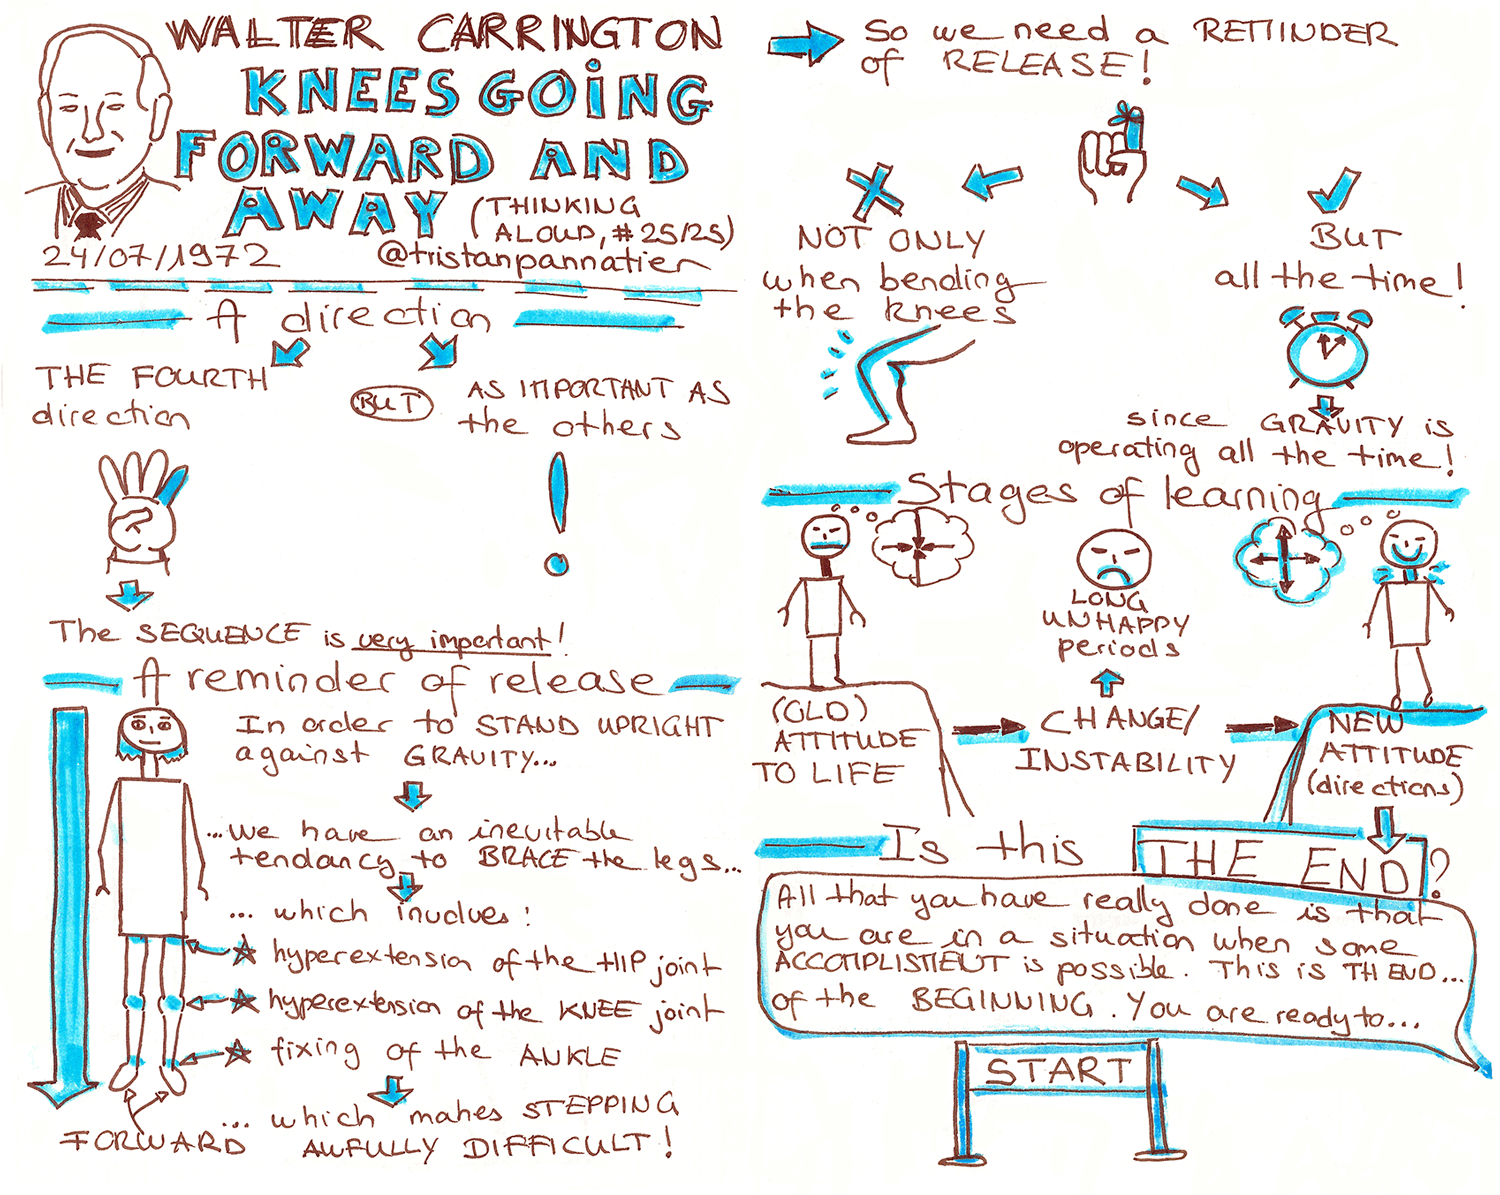 WALTER CARRINGTON
KNEES GOING
FORWARD AND
AWAY (THINKING
ALOUD, #25/25)
24/07/1972 @tristanpannatier
A direction
THE FOURTH
direction
BUT
AS IMPORTANT AS
the others
The SEQUENCE is very important!
A reminder of release
In order to STAND UPRIGHT
against GRAVITY...
...we have an inevitable
tendancy to BRACE the legs...
... which involves:
hyperextension of the HIP joint
hyperextension of the KNEE joint
fixing of the ANKLE
... which makes STEPPING
AWFULLY DIFFICULT!
FORWARD
So we need a REMINDER
of RELEASE!
NOT ONLY
when bending
the knees
BUT
all the time!
since GRAVITY is
operating all the time!
Stages of learning
LONG
UNHAPPY
periods
(OLD)
ATTITUDE
TO LIFE
CHANGE/
INSTABILITY
NEW
ATTITUDE
(directions)
Is this THE END?
All that you have really done is that
you are in a situation when some
ACCOMPLISHMENT is possible. This is TH END...
of the BEGINNING. You are ready to...
START